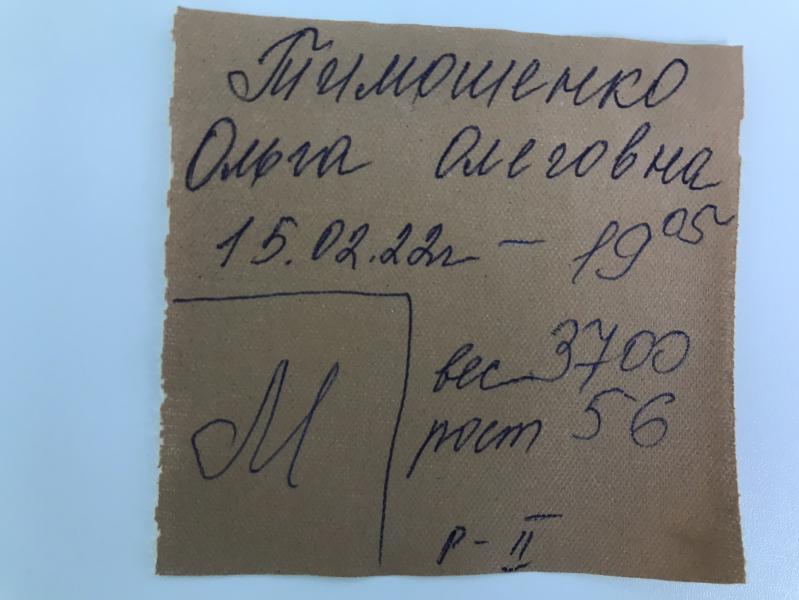 Тимошенко
Ольга Олеговна
15.02.22г – 19 05
вес 3700
рост 56
М
р-II